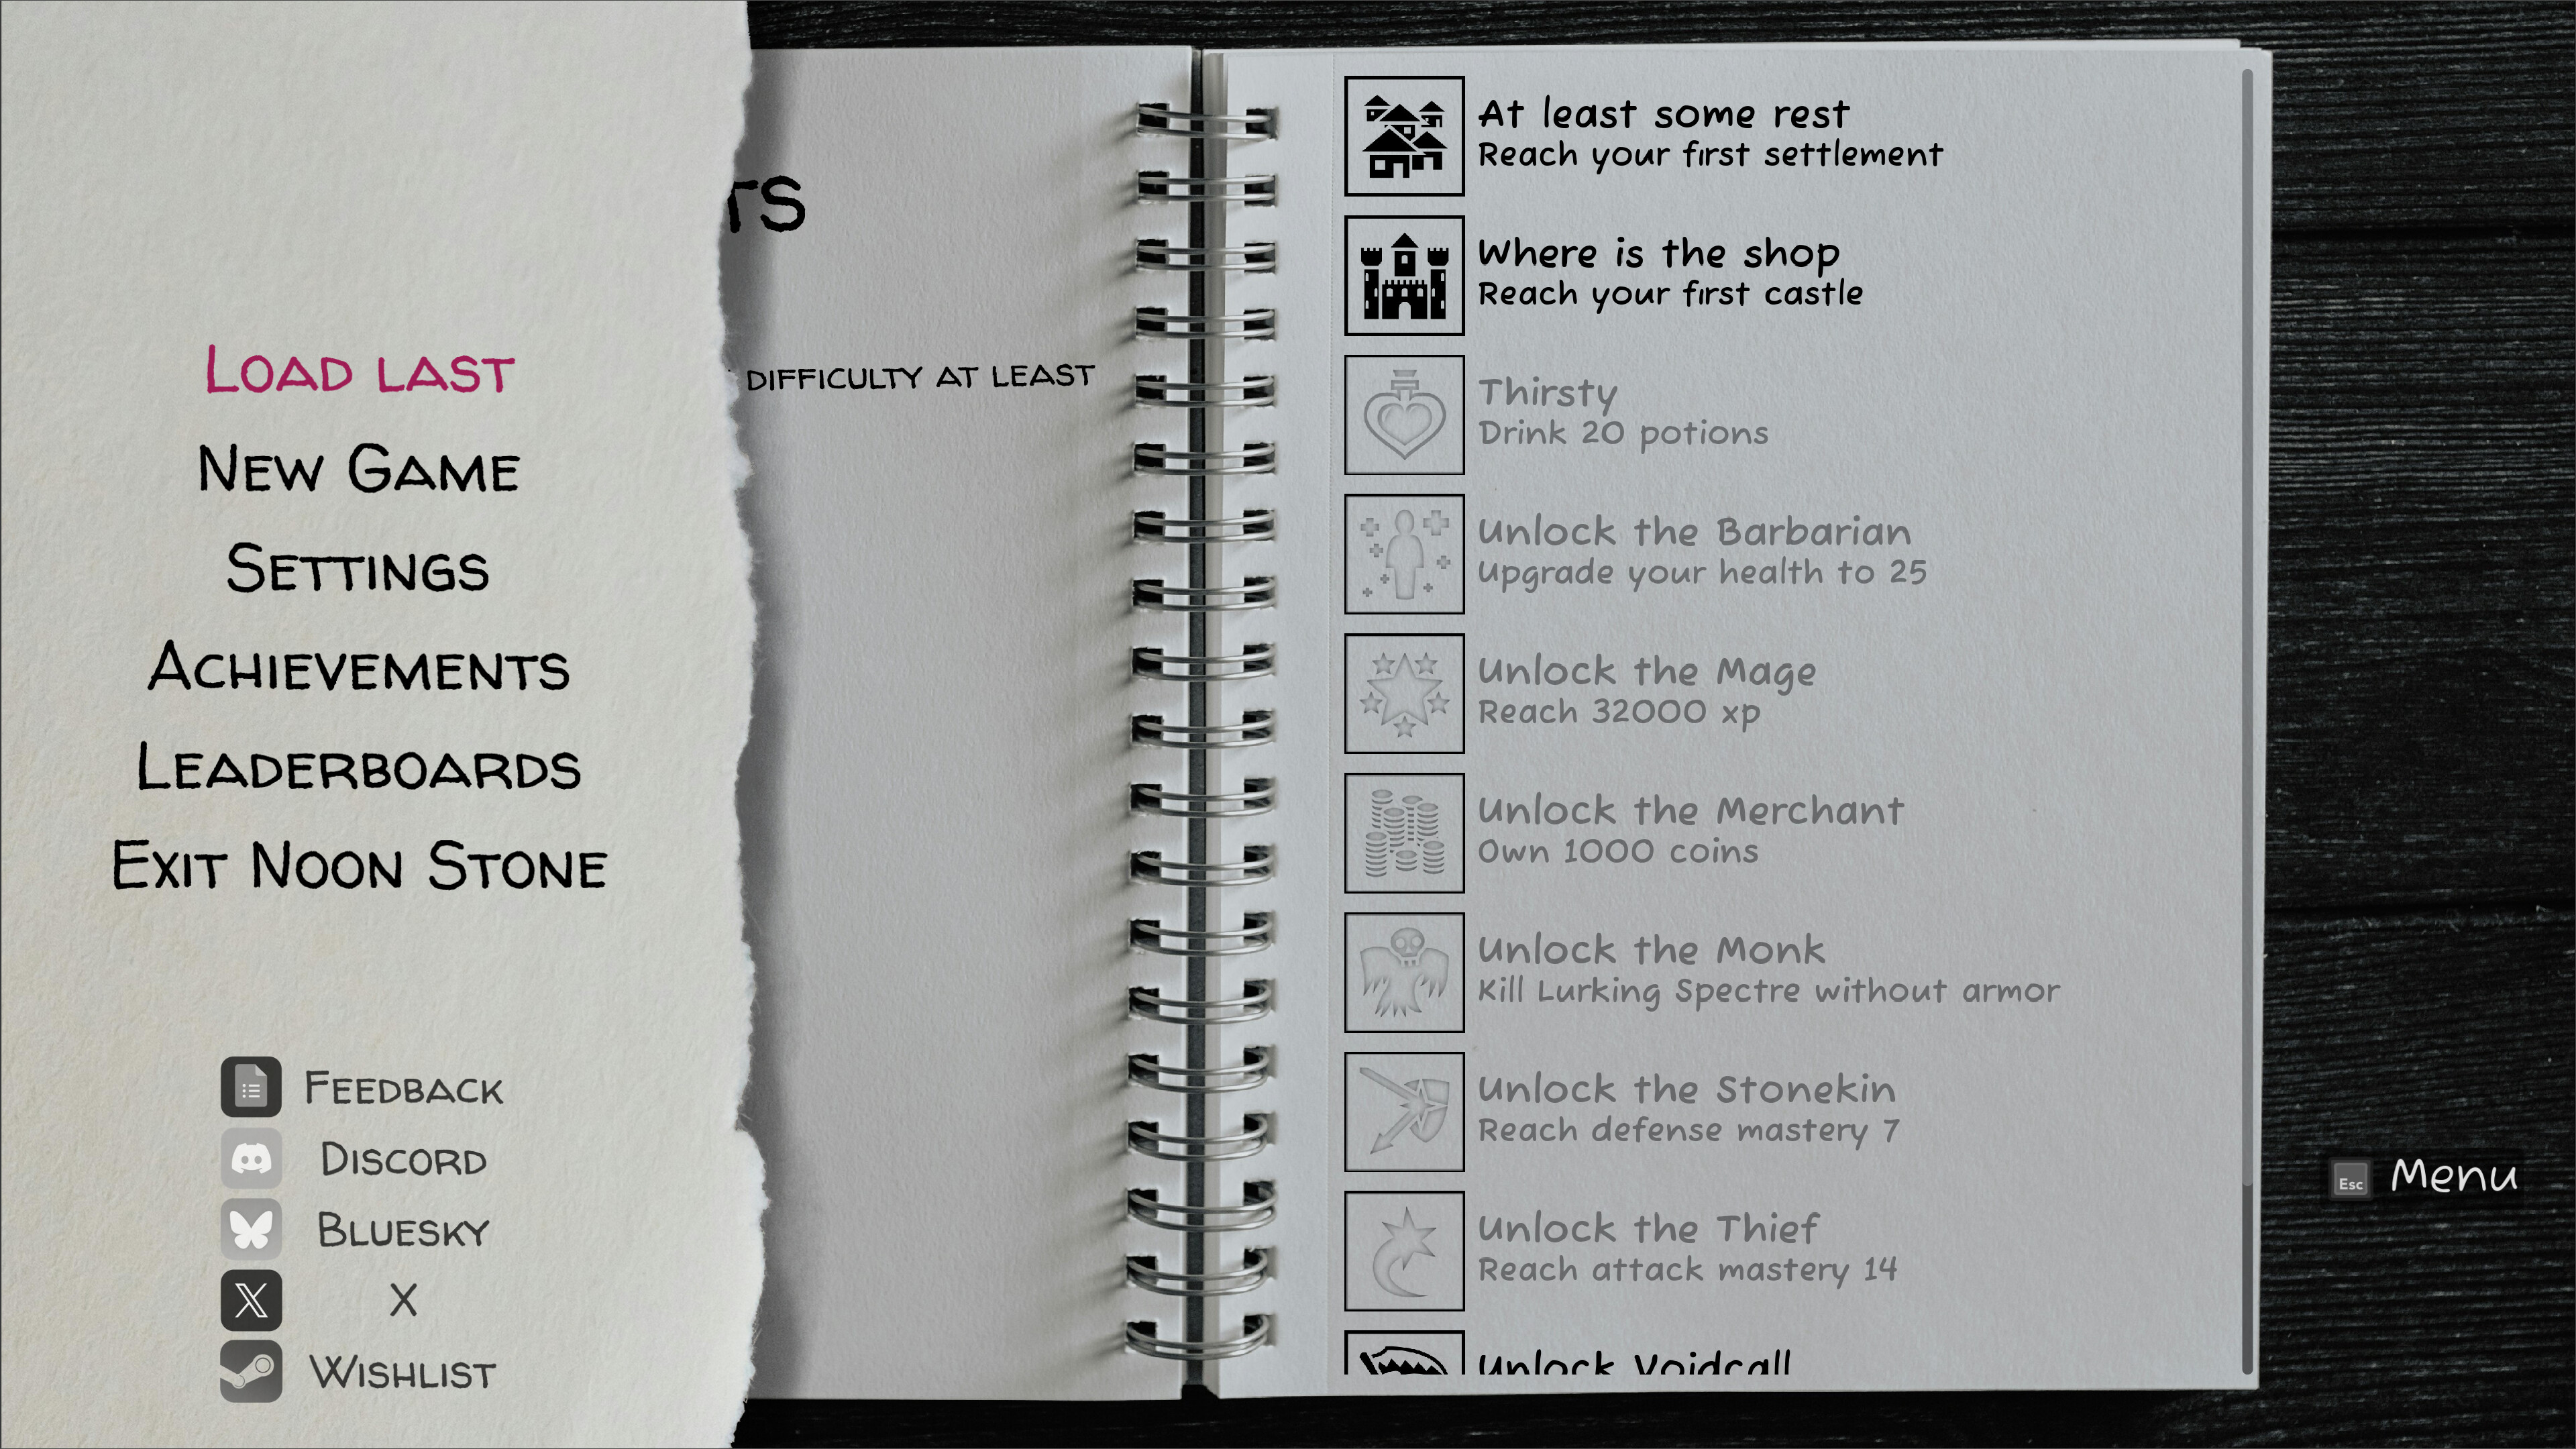 Load last
New Game
Settings
Achievements
Leaderboards
Exit Noon Stone
Feedback
Discord
Bluesky
X
Wishlist
TS
DIFFICULTY AT LEAST
At least some rest
Reach your first settlement
Where is the shop
Reach your first castle
Thirsty
Drink 20 potions
Unlock the Barbarian
Upgrade your health to 25
Unlock the Mage
Reach 32000 xp
Unlock the Merchant
Own 1000 coins
Unlock the Monk
Kill Lurking Spectre without armor
Unlock the Stonekin
Reach defense mastery 7
Unlock the Thief
Reach attack mastery 14
Unlock Voidcall
Esc Menu